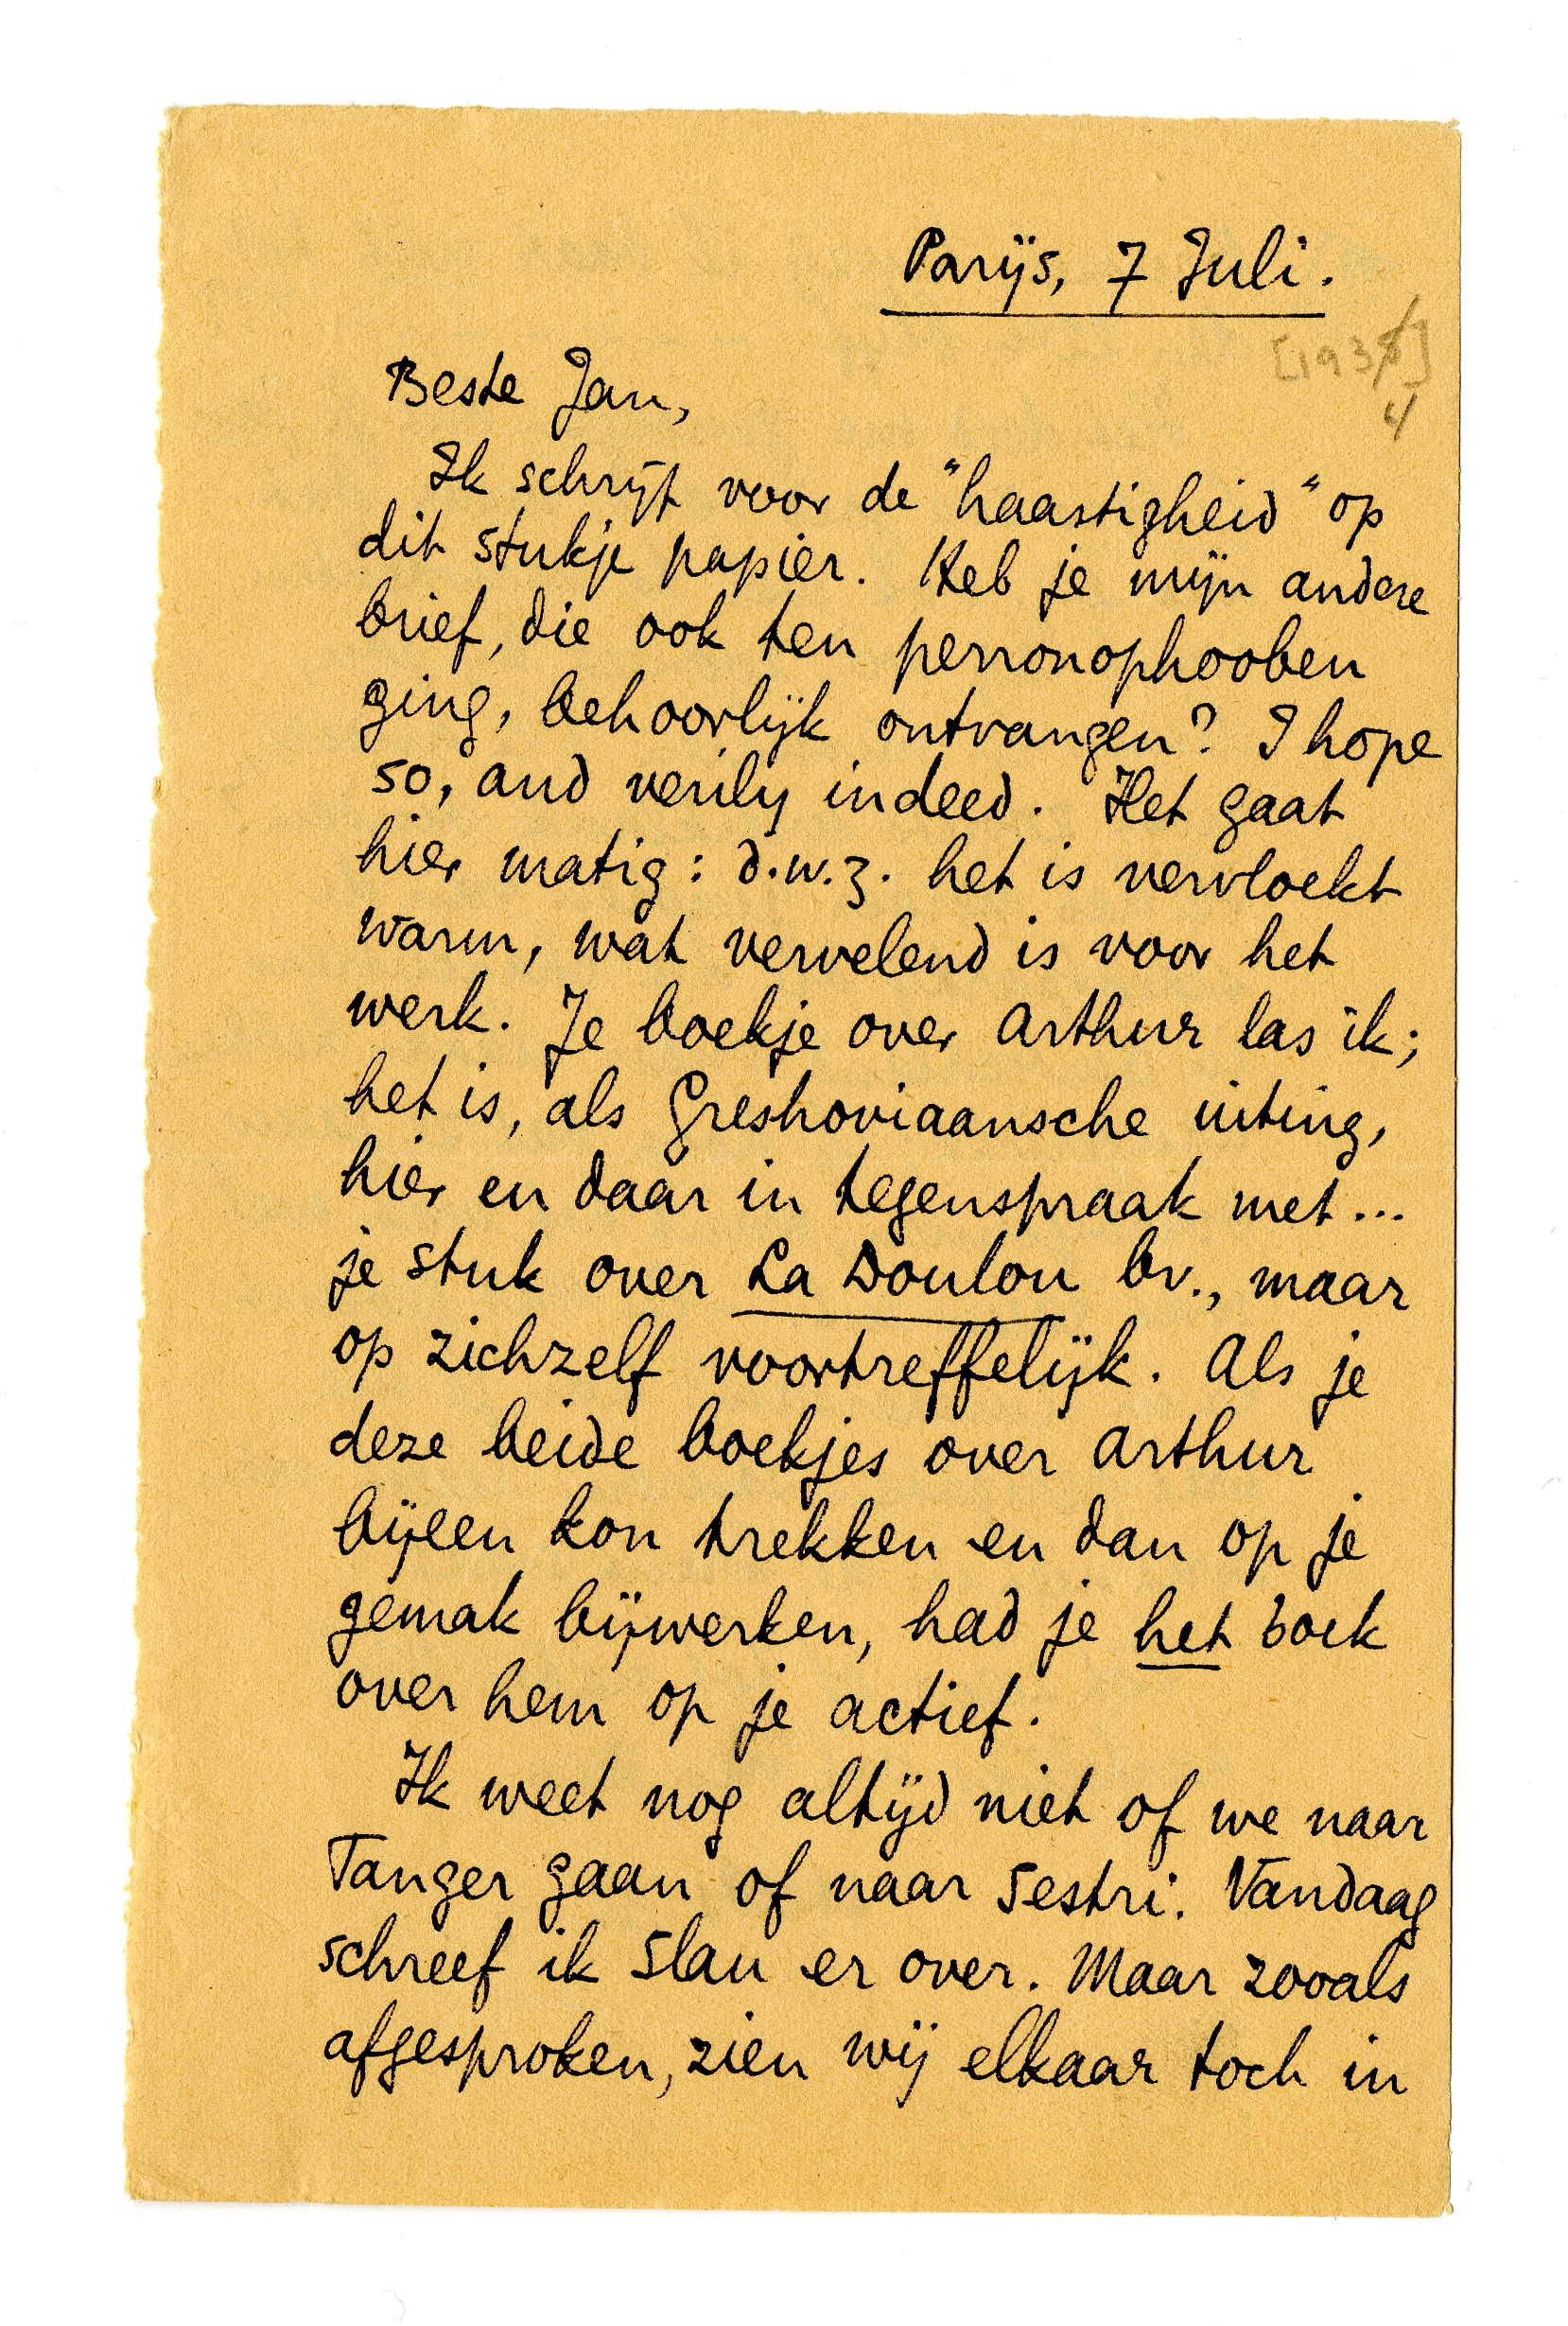 Parijs, 7 Juli.
[1938]
4
Beste Jan,
Ik schrijf voor de "haastigheid" op
dit stukje papier. Heb je mijn andere
brief, die ook ten perronophooben
ging, behoorlijk ontvangen? I hope
so, and verily indeed. Het gaat
hier matig: d.w.z. het is vervloekt
warm, wat vervelend is voor het
werk. Je boekje over Arthur las ik;
het is, als Greshoviaansche uiting,
hier en daar in tegenspraak met...
je stuk over La Doulou bv., maar
op zichzelf voortreffelijk. Als je
deze beide boekjes over Arthur
bijeen kon trekken en dan op je
gemak bijwerken, had je het boek
over hem op je actief.
Ik weet nog altijd niet of we naar
Tanger gaan of naar Sestri. Vandaag
schreef ik Slau er over. Maar zooals
afgesproken, zien wij elkaar toch in